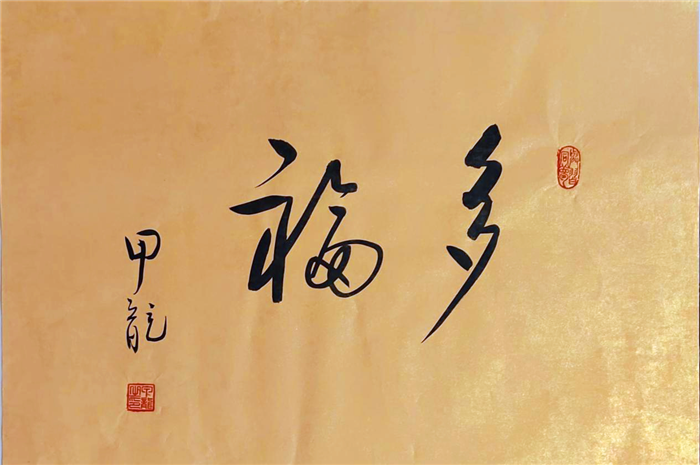 多福
甲龍